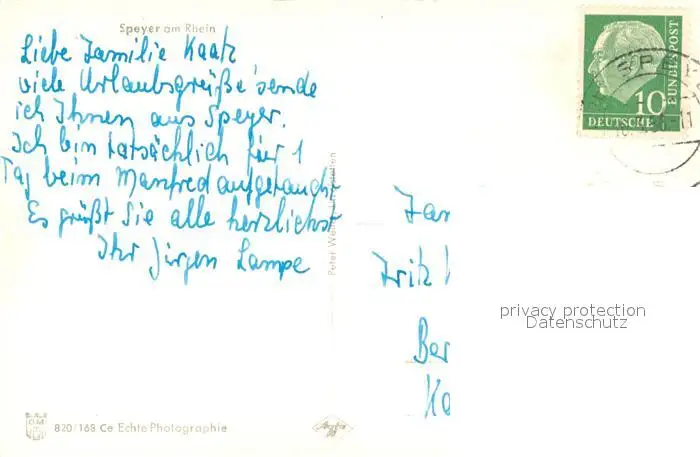 Speyer am Rhein
Liebe Familie Kaatz
viele Urlaubsgrüße sende
ich Ihnen aus Speyer.
Ich bin tatsächlich für 1
Tag beim Manfred aufgetaucht
Es grüßt Sie alle herzlichst
Ihr Jürgen Lampe
Peter
Fam
Fritz
Ber
Ka
10
DEUTSCHE
BUNDESPOST
privacy protection
Datenschutz
820/168 Ce Echte Photographie